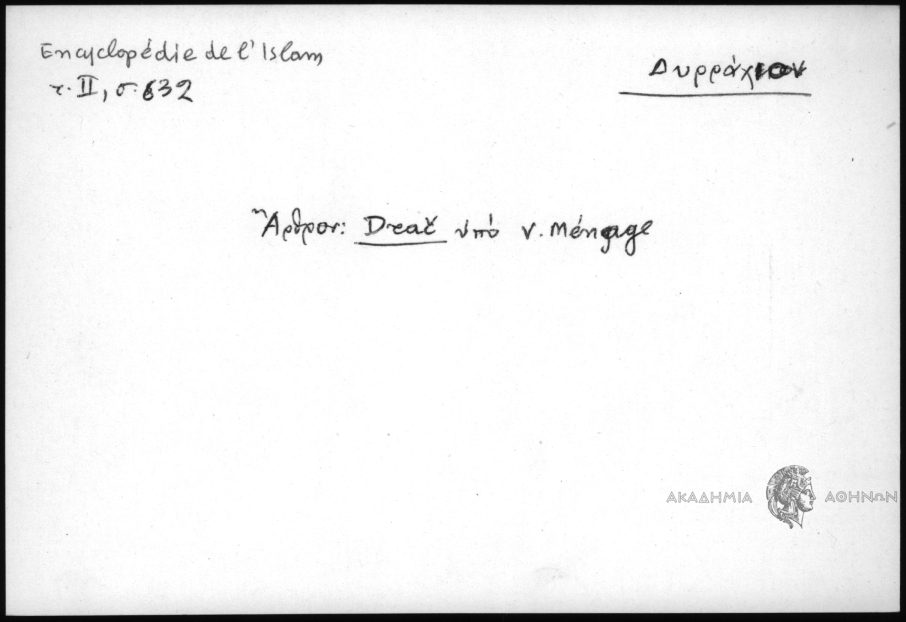 Encyclopédie de l'Islam
τ. II, σ. 632
Δυρράχιον
Ἄρθρον: Drač ὑπό V. Ménage
ΑΚΑΔΗΜΙΑ ΑΘΗΝΩΝ